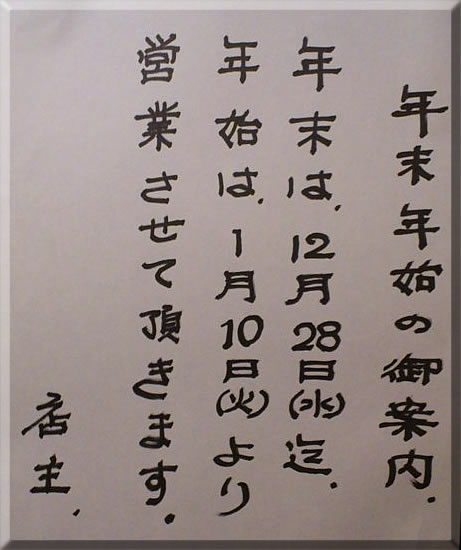 年末年始の御案内.
年末は、12月28日(水)迄.
年始は、1月10日(火)より
営業させて頂きます.
店主、